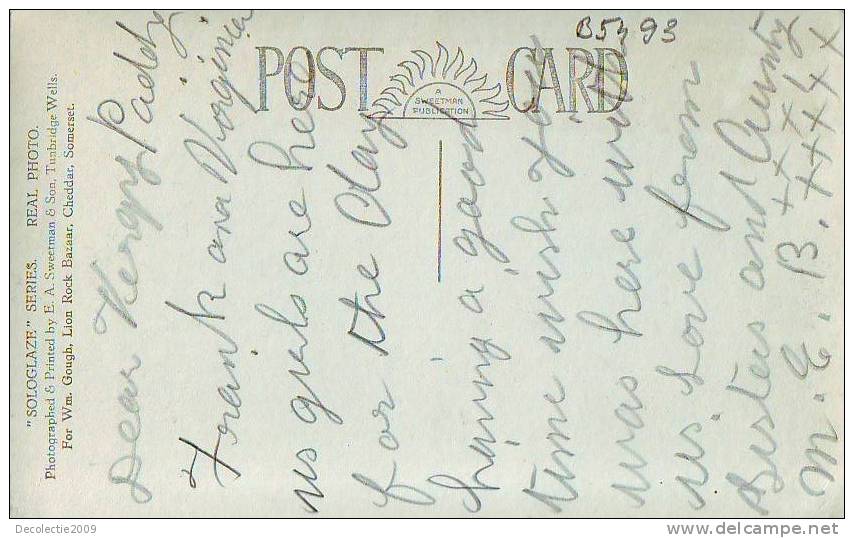 "SOLOGLAZE" SERIES. REAL PHOTO.
Photographed & Printed by E. A. Sweetman & Son, Tunbridge Wells.
For Wm. Gough, Lion Rock Bazaar, Cheddar, Somerset.
POST CARD
A
SWEETMAN
PUBLICATION
B5493
Dear Paddy
Frank and Virginia
us girls are here
for the day
having a good
time wish you
was here with
us. Love from
Sisters and Aunty
M. E. B. xxxxxx
xxxx
Decolectie2009
www.delcampe.net